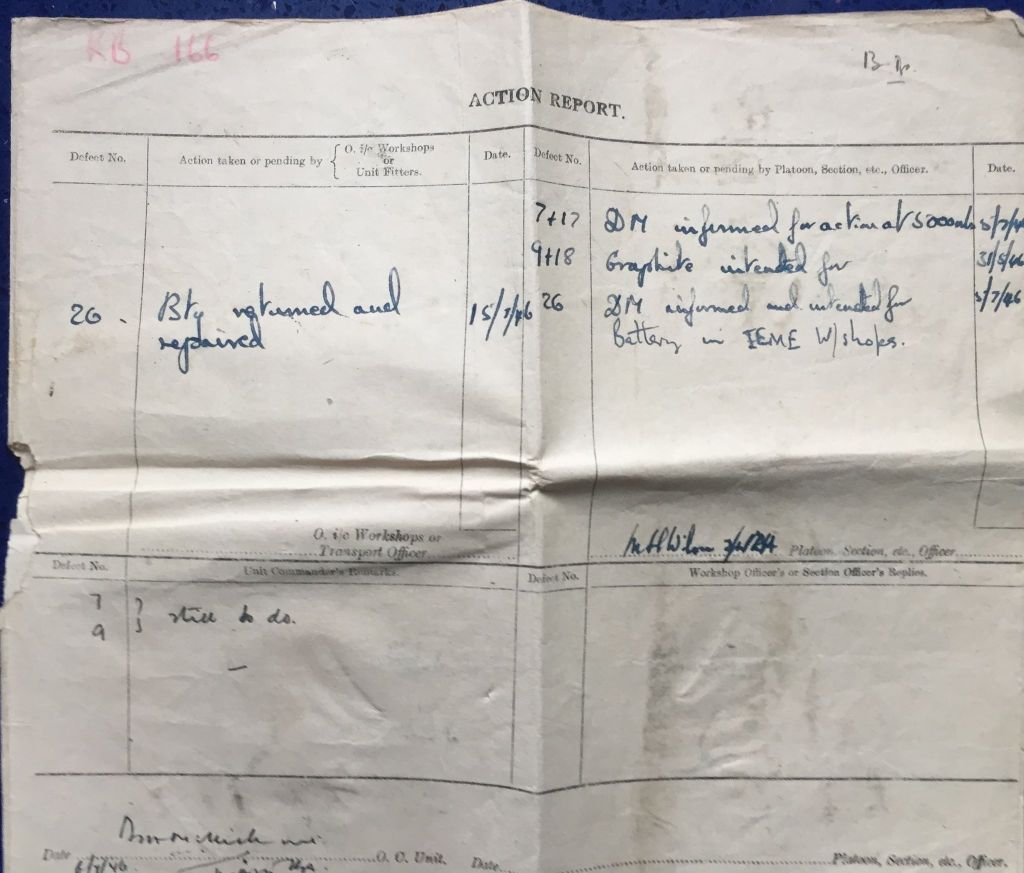 KB 166
ACTION REPORT.
Defect No.
Action taken or pending by { O. i/c Workshops or Unit Fitters.
Date.
Defect No.
Action taken or pending by Platoon, Section, etc., Officer.
Date.
7+17 DM informed for action at 5000mls
9+18 Graphite intended for 31/5/46
26 . Bty returned and 15/7/46
repaired
26 DM informed and intended for
Battery in IEME W/shops.
O. i/c Workshops or
Transport Officer
Wilson
Platoon, Section, etc., Officer
Defect No.
Unit Commander's Remarks.
Defect No.
Workshop Officer's or Section Officer's Replies.
7 } still to do.
9
Date
O. C. Unit.
Date
Platoon, Section, etc., Officer.
6/7/46.